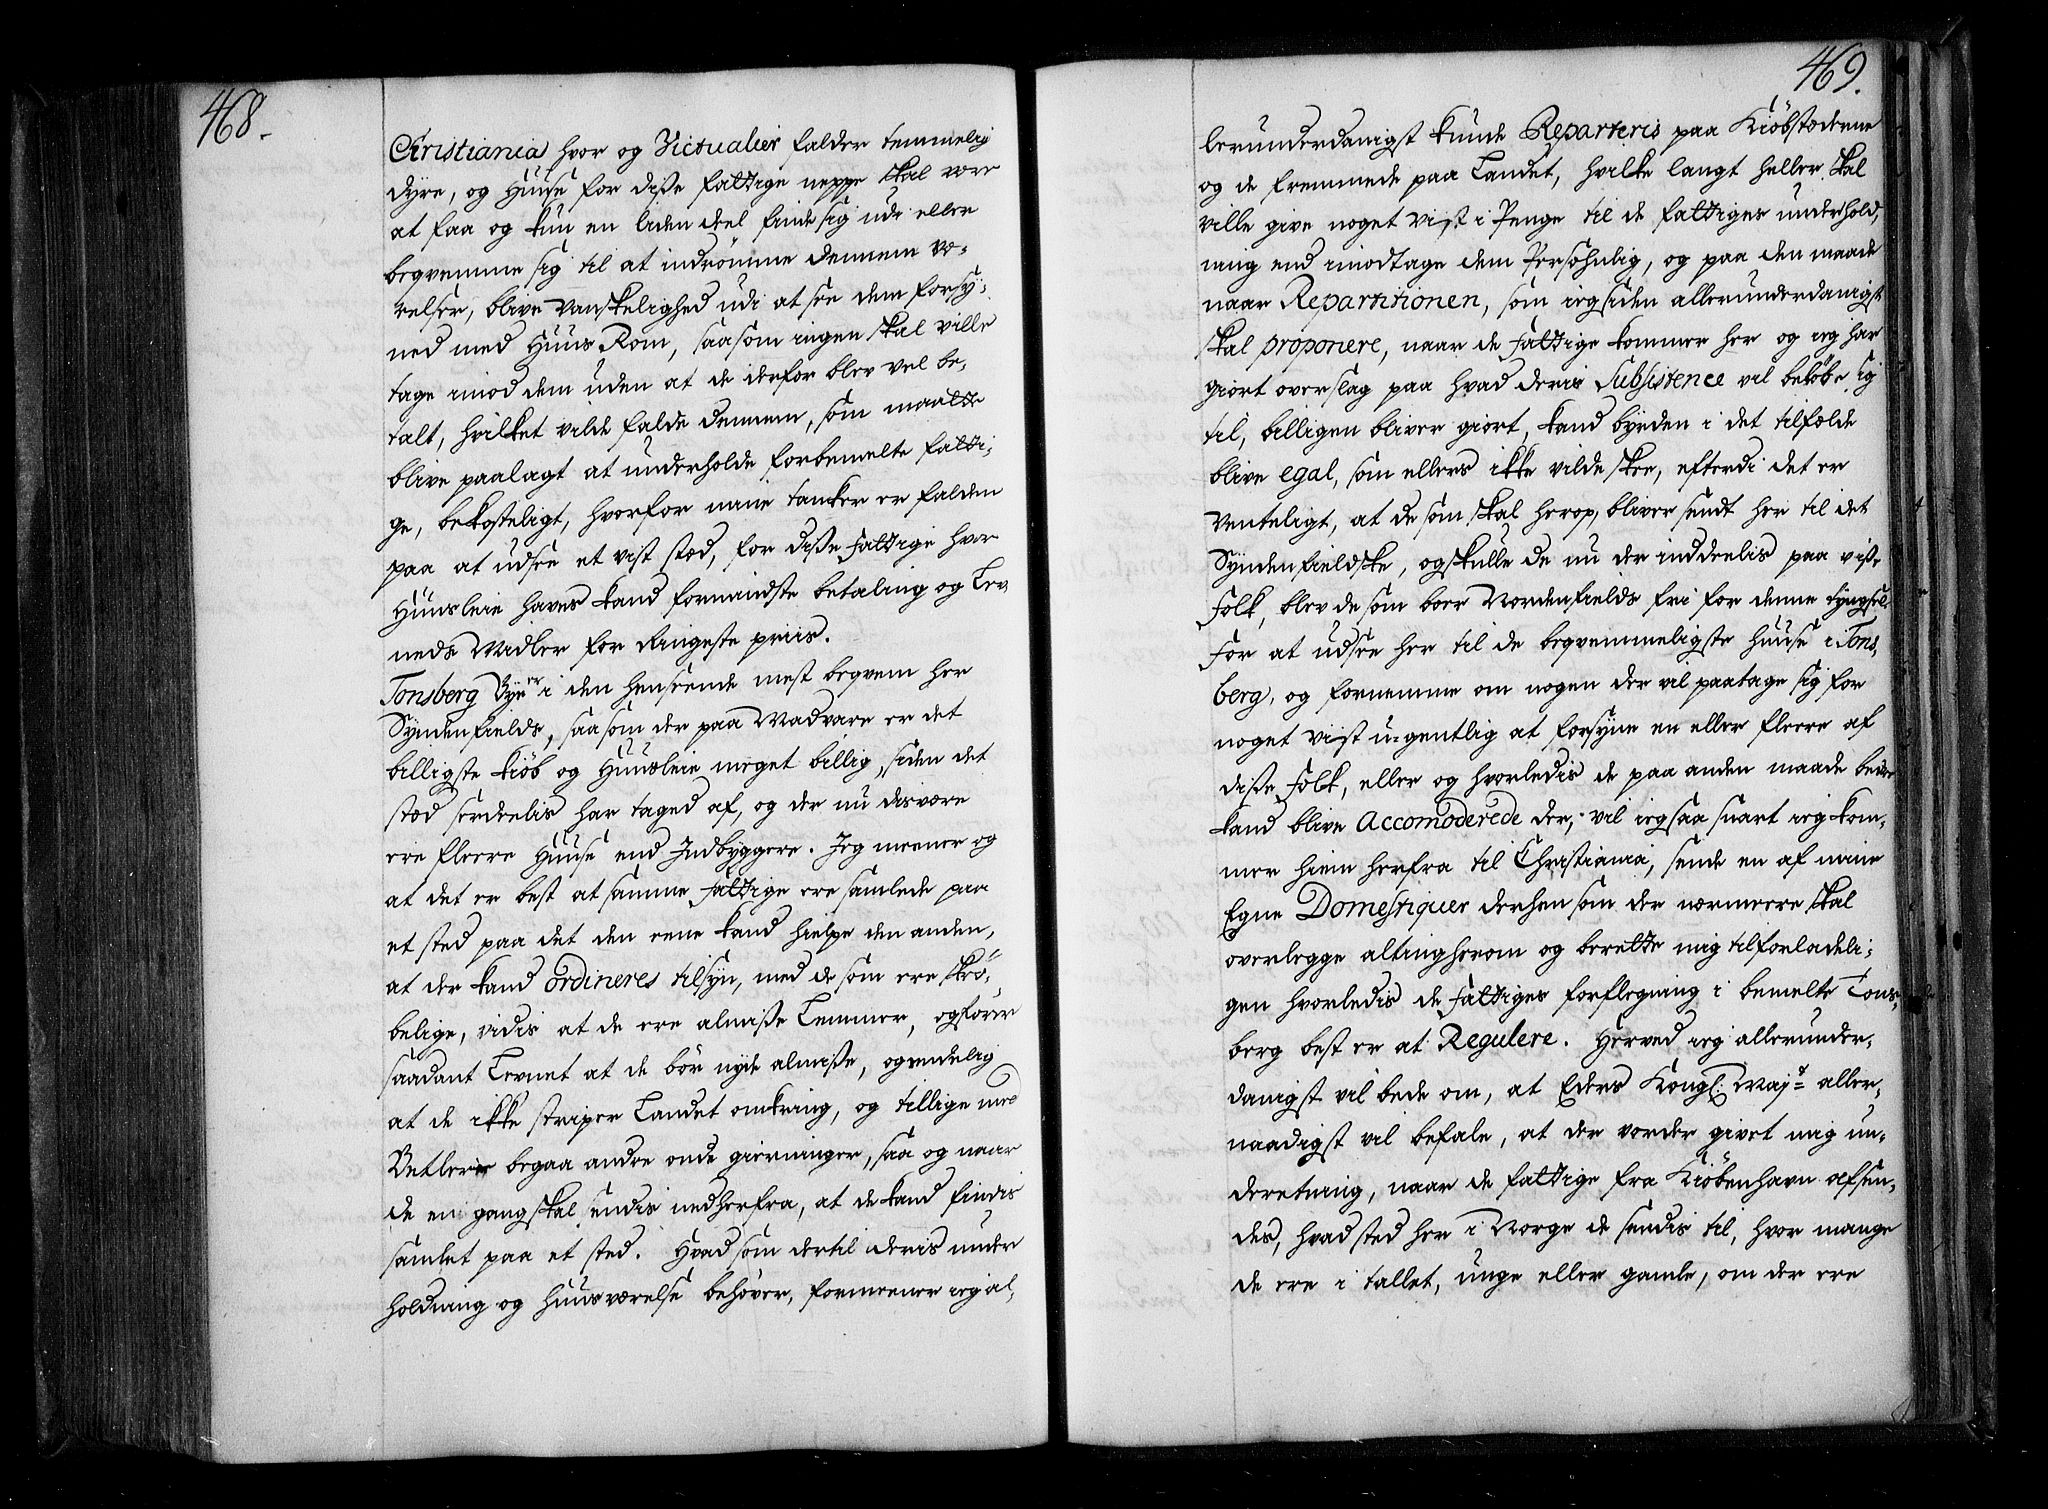 468.
Christiania hvor og Victualier falder temmelig
dyre, og Huuse for disse fattige neppe skal være
at faa og kun en liden deel finde sig udi eller
beqvemme sig til at indrömme dennem væ-
relser, blive Vanskelighed udi at see dem forsy-
ned med Huus Rom, saasom ingen skal ville
tage imod dem uden at de derfor blev vel be-
talt, hvilket vilde falde dennem, som maatte
blive paalagt at underholde forbemelte fatti-
ge, bekosteligt, hvorfor mine tanker er falden
paa at udsee et vist stæd, for disse Fattige hvor
Huusleie haves kand for mindste betaling og Lev-
neds Midler for Ringeste priis.
Tonsberg Bye er i den henseende mest beqvem her
Syndenfields, saasom der paa Madvare er det
billigste kiöb og Huusleie meget billig, siden det
stæd serdeelis har taged af, og der nu disvære
ere fleere Huuse end Indbyggere. Jeg meener og
at det er best at samme Fattige ere samlede paa
et sted paa det den eene kand hielpe den anden,
at der kand ordineres tilsyn, med de som ere skrö-
belige, vidis at de ere almisse Lemmer, og förer
saadant Levnet at de bör nyde almisse, og endelig
at de ikke striper Landet omkring, og tillige med
Betlerie begaa andre onde gierninger, saa og naar
de en gang skal sendis ned herfra, at de kand findis
samlet paa et sted. Hvad som dertil deris under
holdning og huusværelse behöver, formeener ieg al-
469.
lerunderdanigst kunde Reparteris paa Kiöbstæderne
og de fremmede paa Landet, hvilke langt heller skal
ville give noget vist i Penge til de fattiges underhold-
ning end imodtage dem Persohnlig, og paa den maade
naar Repartitionen, som ieg siden allerunderdanigst
skal proponere, naar de Fattige kommer her og ieg har
giort overslag paa hvad deris Subsistence vil beløbe sig
til, billigen bliver giort, kand byrden i det tilfælde
blive egal, som ellers ikke vilde skee, efterdi det er
Venteligt, at de som skal herop, bliver sendt her til det
Syndenfieldske, og skulle de nu der inddeelis paa visse
Folk, blev de som boer Nordenfields fri for denne tyngsel.
For at udsee her til de beqvemmeligste huuse i Tons-
berg, og fornemme om nogen der vil paatage sig for
noget vist u-gentlig at forsyne en eller fleere af
disse Folk, eller og hvorledis de paa anden maade bedre
kand blive Accomoderede der, vil ieg saa snart ieg kom-
mer hiem herfra til Christiania, sende en af mine
Egne Domestiquer derhen som der nærmeere skal
overlegge alting herom og berette mig tilforladeli-
gen hvorledis de Fattiges forflegning i bemelte Tons-
berg best er at Regulere. Herved ieg allerunder-
danigst vil bede om, at Eders Kongl: Majt aller-
naadigst vil befale, at der vorder givet mig un-
derretning, naar de fattige fra Kiöbenhavn afsen-
des, hvad sted her i Norge de sendis til, hvor mange
de ere i tallet, unge eller gamle, om der ere